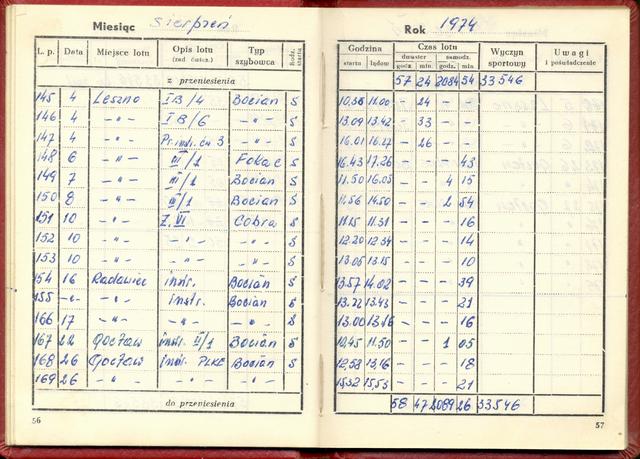 Miesiąc Sierpień
L. p. Data Miejsce lotu Opis lotu (zad. ćwicz.) Typ szybowca Rodz. startu
z przeniesienia
145 4 Leszno IB/4 Bocian S
146 4 -"- IB/6 -"- S
147 4 -"- Pr. instr. ćw 3 -"- S
148 6 -"- III/1 Foka S
149 7 -"- III/1 Bocian S
150 8 -"- III/1 Bocian S
151 10 -"- Z. VI Cobra S
152 10 -"- -"- -"- S
153 10 -"- -"- -"- S
154 16 Radawiec instr. Bocian S
155 -"- -"- instr. Bocian S
166 17 -"- -"- -"- S
167 22 Gocław instr. II/1 Bocian S
168 26 Gocław instr. PLKE Bocian S
169 26 -"- -"- -"-
do przeniesienia
56
Rok 1974
Godzina Czas lotu Wyczyn sportowy Uwagi i poświadczenie
startu lądow. dwuster godz. min. samodz. godz. min
57 24 2084 54 33546
10.36 11.00 - 24 - -
13.09 13.42 - 33 - -
16.01 16.27 - 26 - -
16.43 17.26 - - - 43
11.50 16.05 - - 4 15
11.56 14.50 - - 2 54
11.15 11.31 - - - 16
12.20 12.34 - - - 14
13.05 13.15 - - - 10
13.57 14.02 - - - 39
13.22 13.43 - - - 21
13.00 13.16 - - - 16
10.45 11.50 - - 1 05
12.58 13.16 - - - 18
15.32 15.53 - - - 21
58 47 2089 26 33546
57